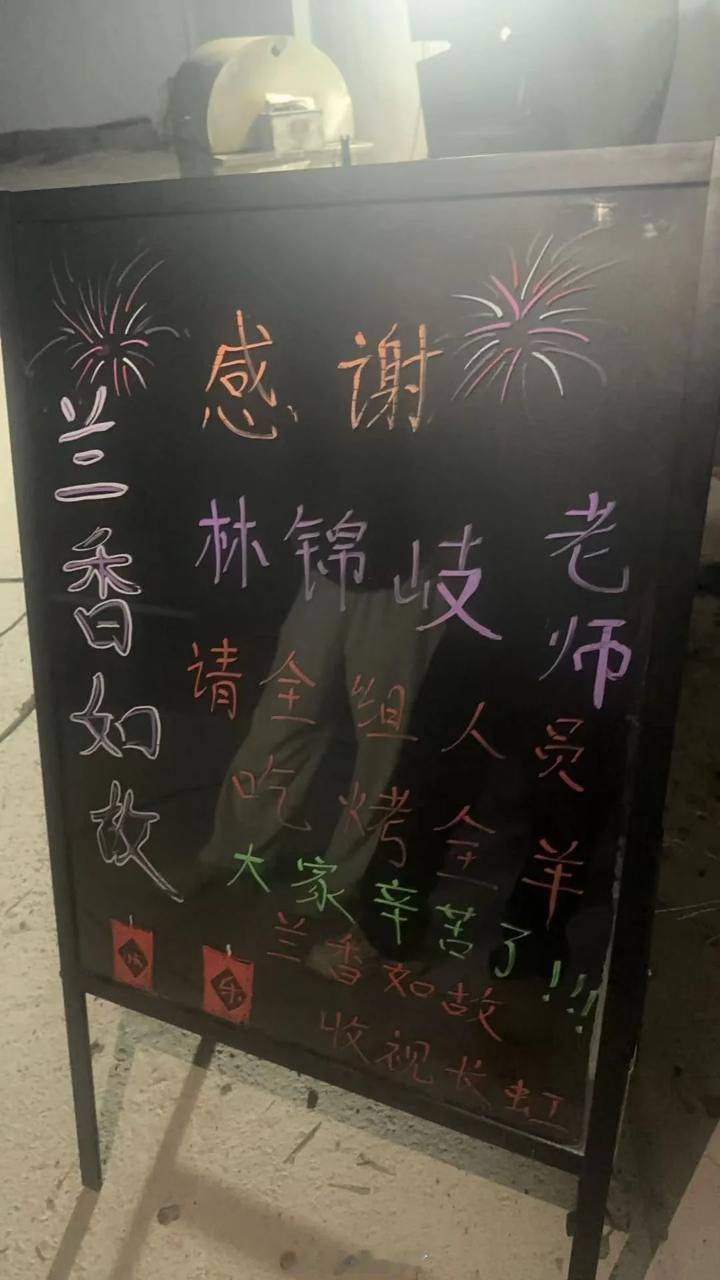 兰香如故
感谢
林锦岐老师
请全组人员
吃烤全羊
大家辛苦了!!!
兰香如故
收视长虹
快乐